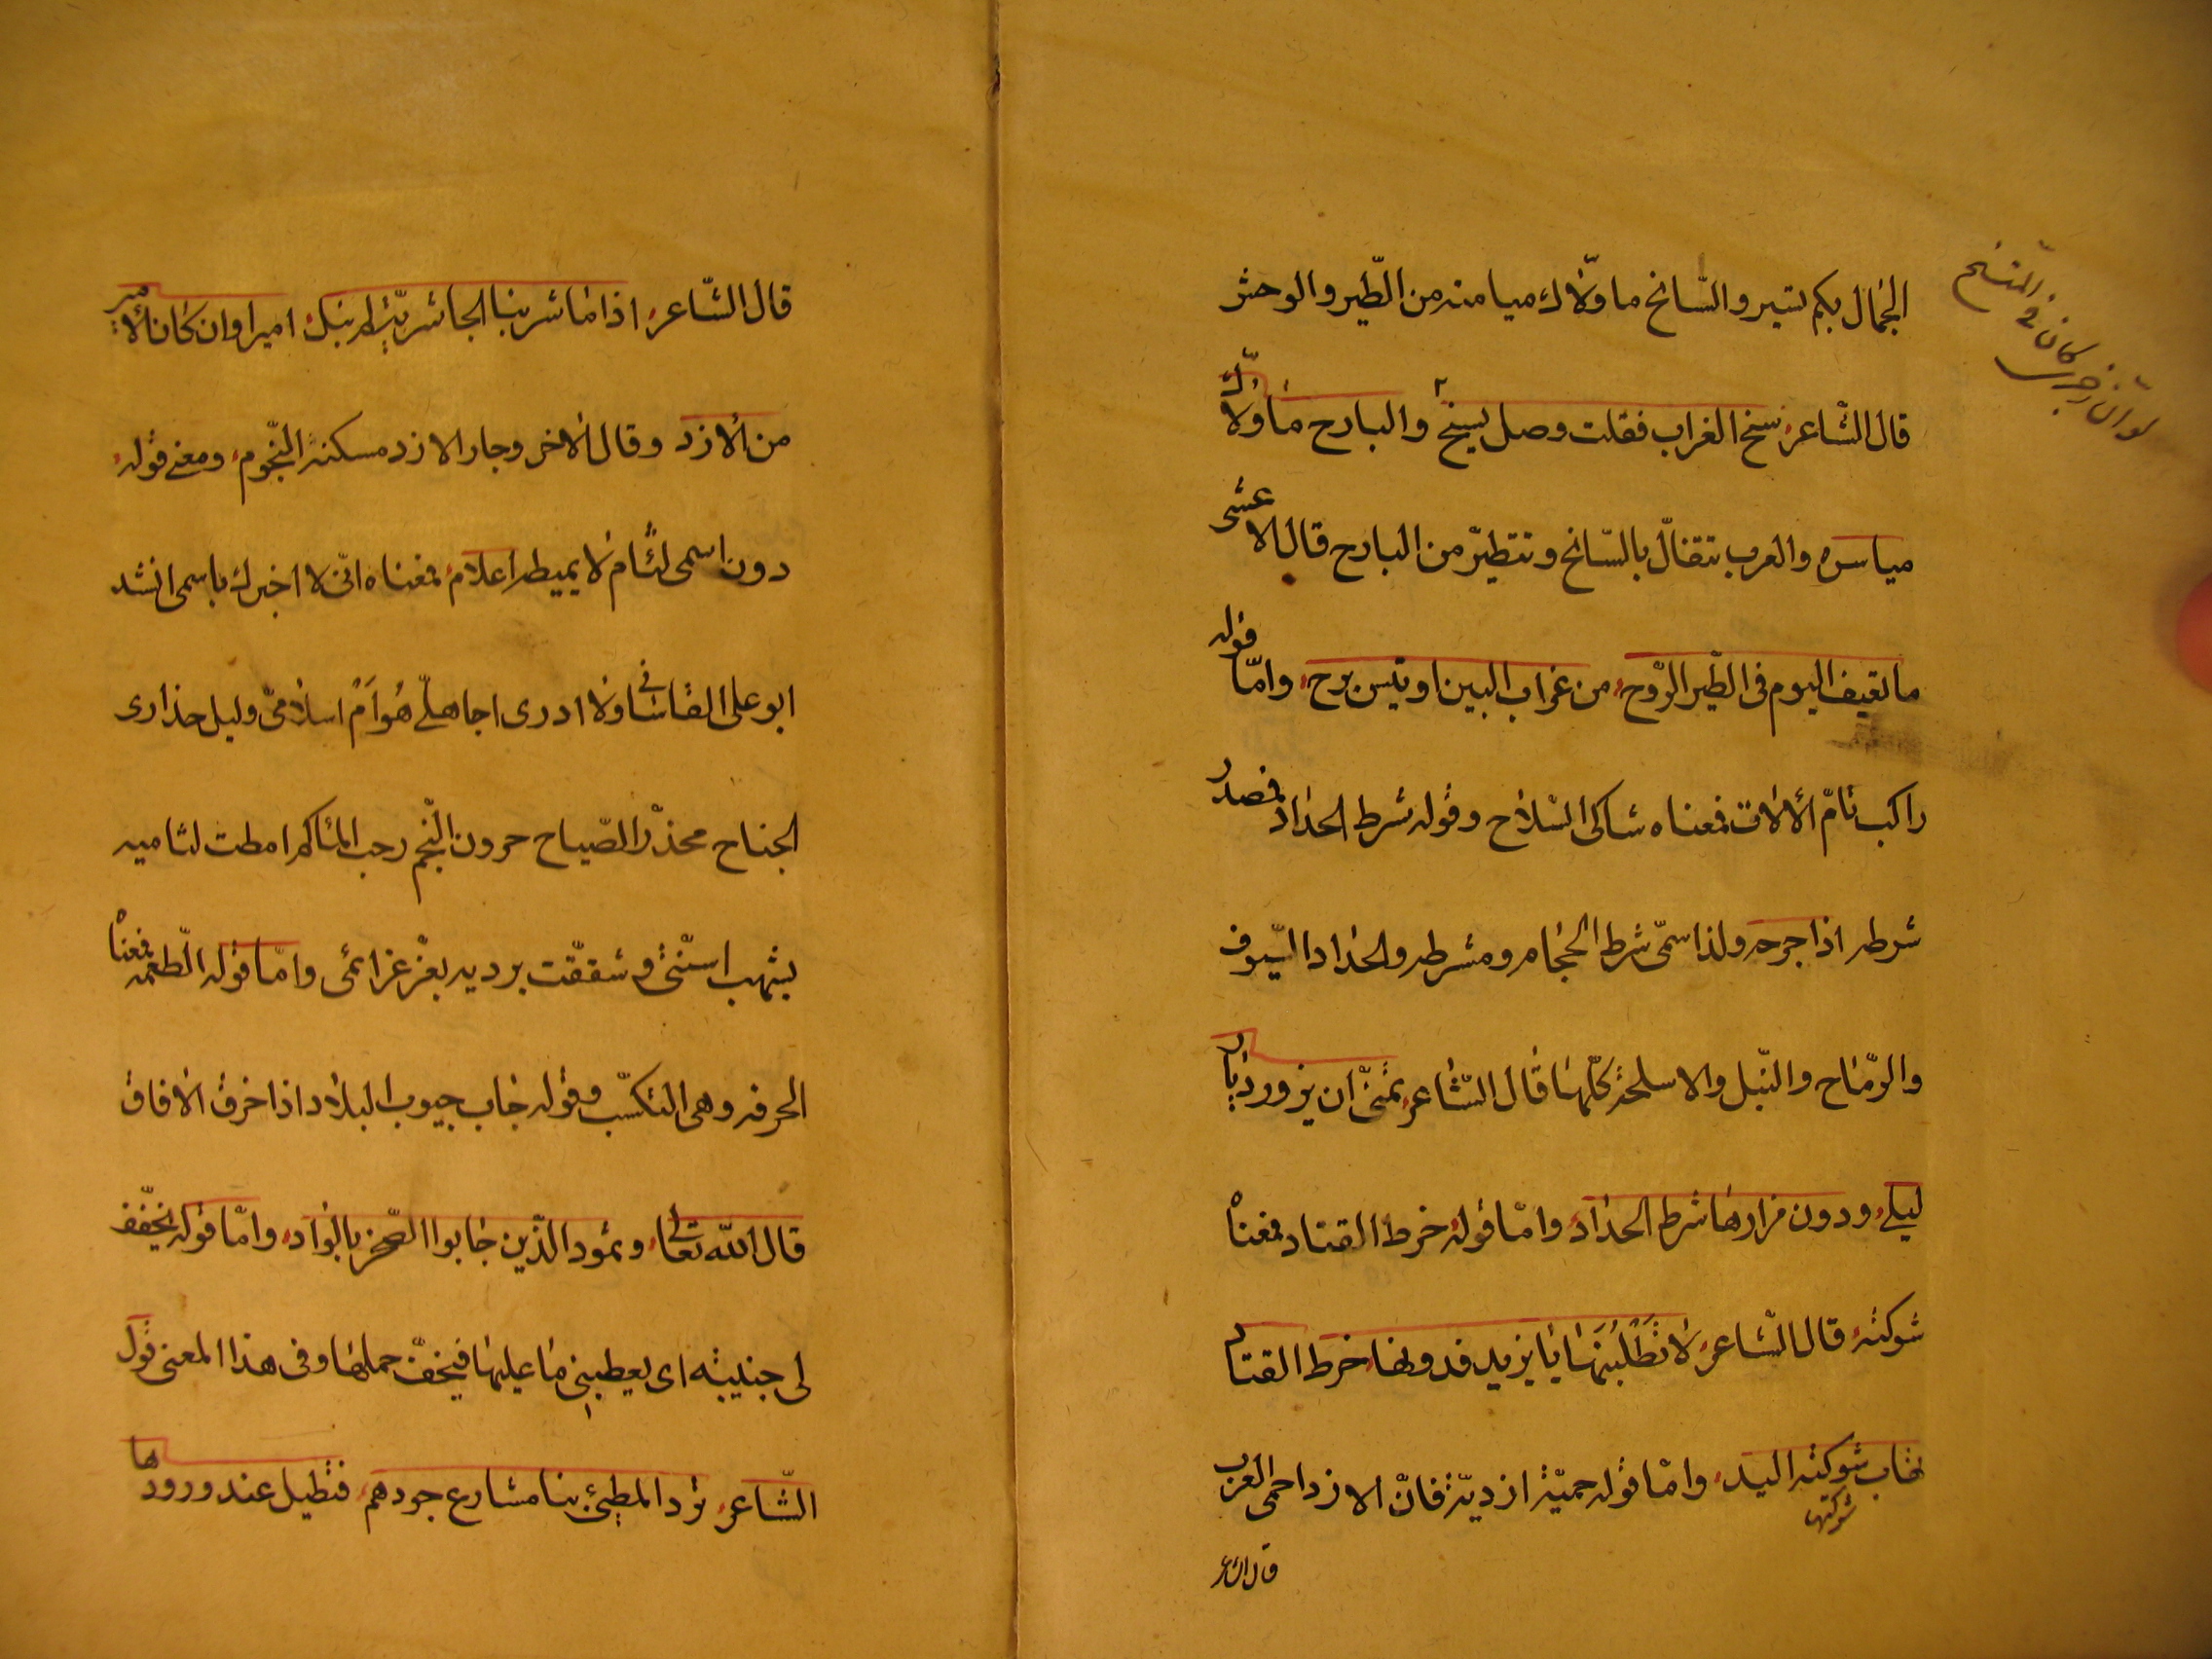 الجمال بكم تسير والسّانح ما ولّاك ميامنه من الطّير والوحش
قال الشّاعر سنح الغراب فقلت وصل يسنح والبارح ما ولّاك
مياسره والعرب تتفأّل بالسّانح وتتطيّر من البارح قال الاعشى
ما تعيف اليوم فى الطّير الرّوح من غراب البين او تيس برح وامّا قوله
راكب تامّ الألات فمعناه شاكى السّلاح وقوله شرط الحداد فمصدر
شرطه اذا جرحه ولذا سمّى شرط الحجام ومشرطه والحداد السّيوف
والرّماح والنّبل والاسلحة كلّها قال الشّاعر تمنّى ان يزور ديار
ليلى ودون مزارها شرط الحداد وامّا قوله خرط القتاد فمعناه
شوكته قال الشّاعر لا تطلبنها يا يزيد فدونها خرط القتاد
تهاب شوكته اليد وامّا قوله حميّة ازديّة فانّ الازد احمى العرب
شوكتها
قال الشاعر
قال الشّاعر اذا ما شربنا الجاشريّة لم نبل اميرا وان كان الأمير
من الأزد وقال الاخر وجار الازد مسكنة النّجوم ومعنى قوله
دون اسمى لثام لا يميطه اعلام فمعناه انّى لا اخبرك باسمى انشد
ابو على القاسانى ولا ادرى اجاهلّى هو أم اسلامىّ وليل حذارى
الجناح محذّر الصّياح حرون النّجم رحب المئاكم امطت لثاميه
بشهب اسنّتى وشققت برديه بعزّ عزائمى وامّا قوله الطّعمه فمعناه
الحرفه وهى التكسّب وقوله جاب جيوب البلاد اذا خرق الافاق
قال اللّه تعالى وثمود الّذين جابوا الصّخر بالواد وامّا قوله يخفّف
لى جنيبته اى يعطينى ما عليها فيخفّ حملها وفى هذا المعنى قول
الشّاعر ترد المطىّ بنا مشارع جودهم فتطيل عند ورودها